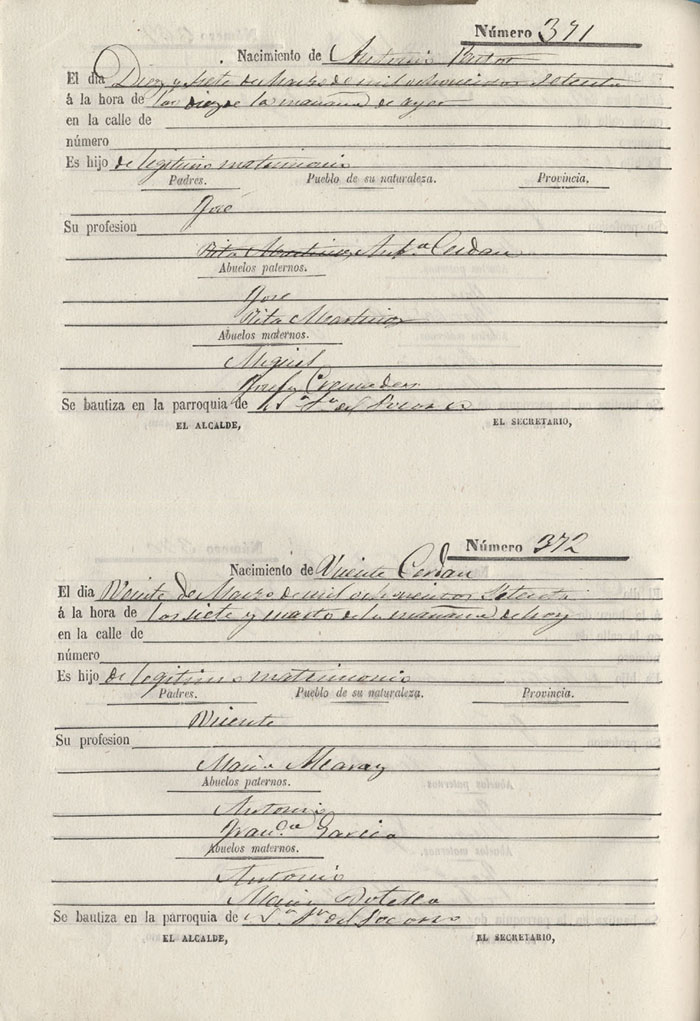 Número 371
Nacimiento de Antonio Pastor
El dia Diez y siete de Marzo de mil ochocientos Setenta
á la hora de las diez de la mañana de ayer
en la calle de
número
Es hijo de legitimo matrimonio
Padres. Pueblo de su naturaleza. Provincia.
José
Su profesion
Rita Martinez Ant.ª Cerdan
Abuelos paternos.
José
Rita Martinez
Abuelos maternos.
Miguel
Josefa Cremades
Se bautiza en la parroquia de N.ª S.ª del Socorro
EL ALCALDE, EL SECRETARIO,
Número 372
Nacimiento de Vicente Cerdan
El dia Veinte de Marzo de mil ochocientos Setenta
á la hora de las siete y cuarto de la mañana de hoy
en la calle de
número
Es hijo de legitimo matrimonio
Padres. Pueblo de su naturaleza. Provincia.
Vicente
Su profesion
Maria Alcaraz
Abuelos paternos.
Antonio
Fran.ca Garcia
Abuelos maternos.
Antonio
Maria Botella
Se bautiza en la parroquia de N.ª S.ª del Socorro
EL ALCALDE, EL SECRETARIO,